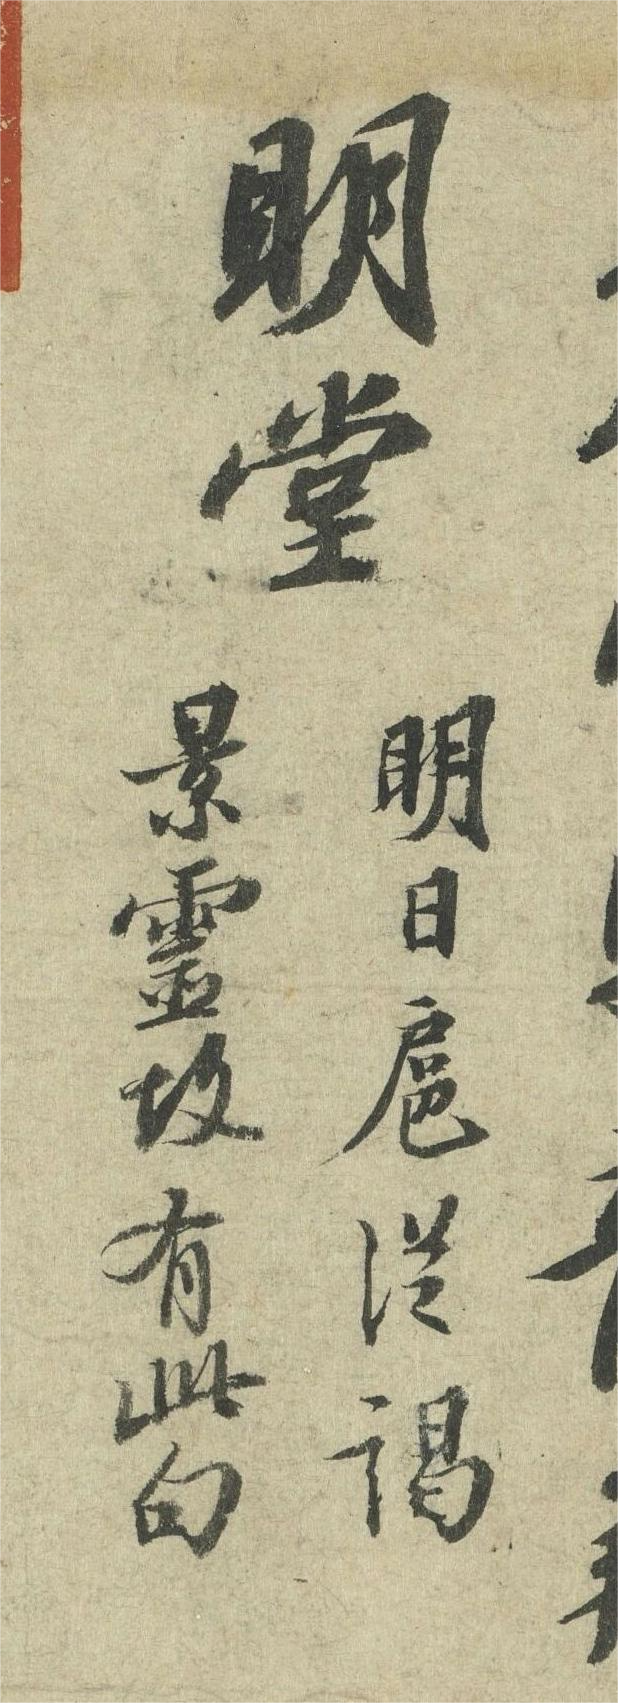 明堂
明日扈從謁
景靈故有此句